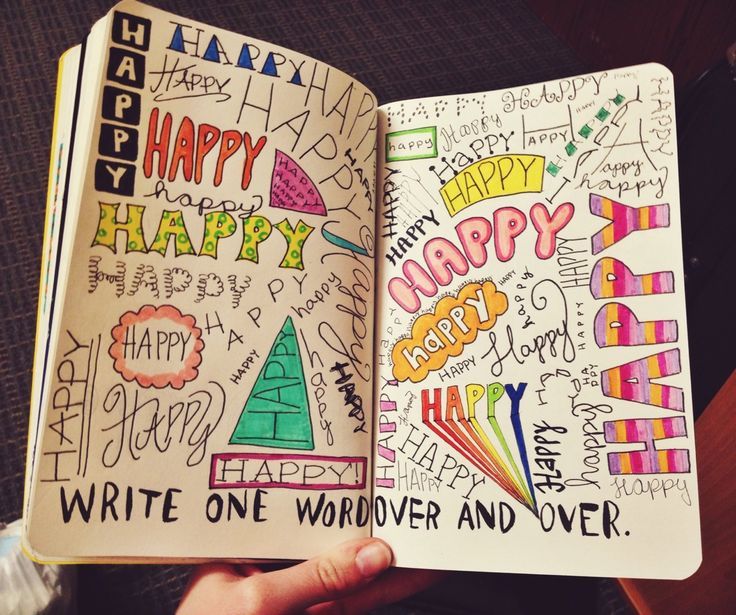 HAPPY
HAPPY
HAPPY
HAPPY
HAPPY
HAPPY
HAPPY
HAPPY
HAPPY
HAPPY
HAPPY
happy
HAPPY
HAPPY
happy
Happy
HAPPY
HAPPY
HAPPY
happy
HAPPY
HAPPY
HAPPY
HAPPY
HAPPY!
HAPPY
HAPPY
happy
Happy
HAPPY
HAPPY
HAPPY
HAPPY
HAPPY
Happy
happy
HAPPY
HAPPY
HAPPY
HAPPY
HAPPY
happy
Happy
happy
HAPPY
HAPPY
HAPPY
HAPPY
HAPPY
HAPPY
HAPPY
Happy
happy
happy
WRITE ONE WORD OVER AND OVER.